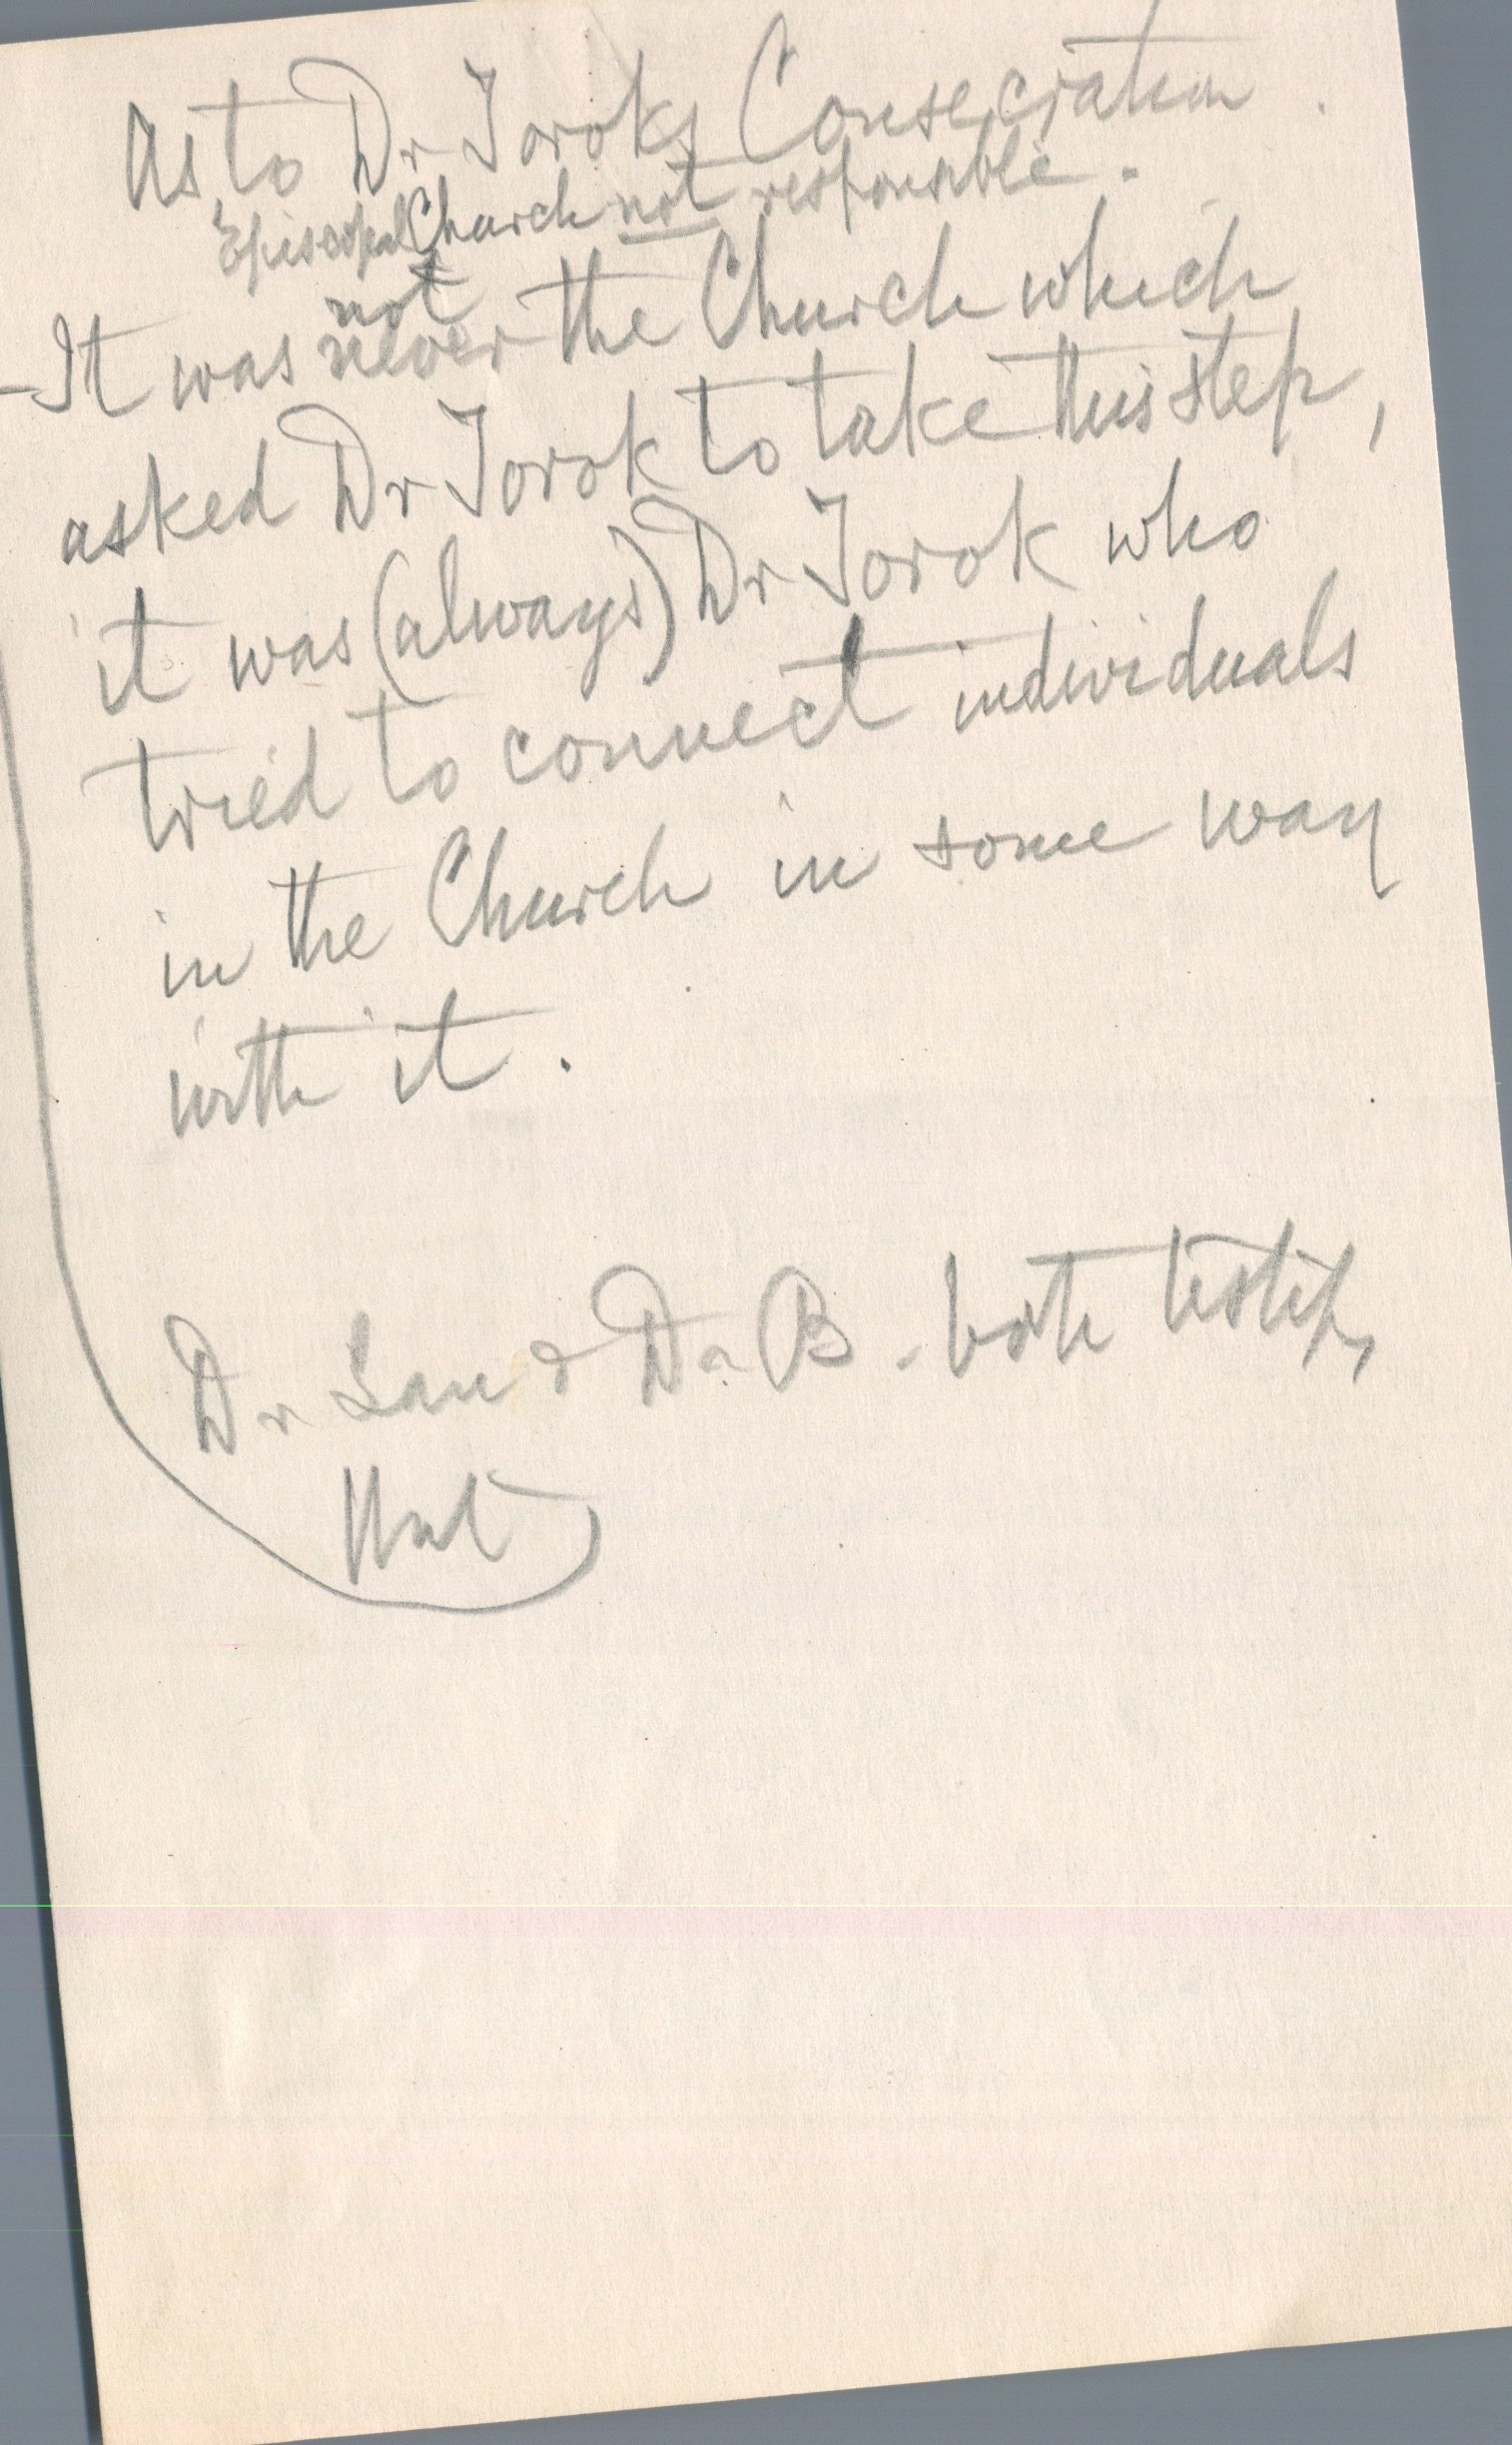 As to Dr Toroks Consecration.
Episcopal Church not responsible.
not
- It was never the Church which
asked Dr Torok to take this step,
it was (always) Dr Torok who
tried to connect individuals
in the Church in some way
with it.
Dr Lau & Dr B - both testify
that